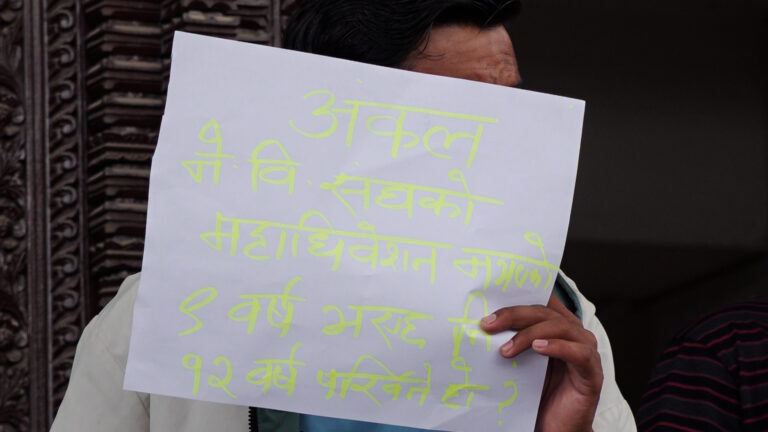 अंकल
ने. वि. संघको
महाधिवेशन नभएको
९ वर्ष भएछ नि
१२ वर्ष पर्खिने हो ?